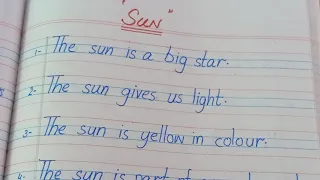 "Sun"
1- The sun is a big star.
2- The sun gives us light.
3- The sun is yellow in colour.
4- The sun is part of